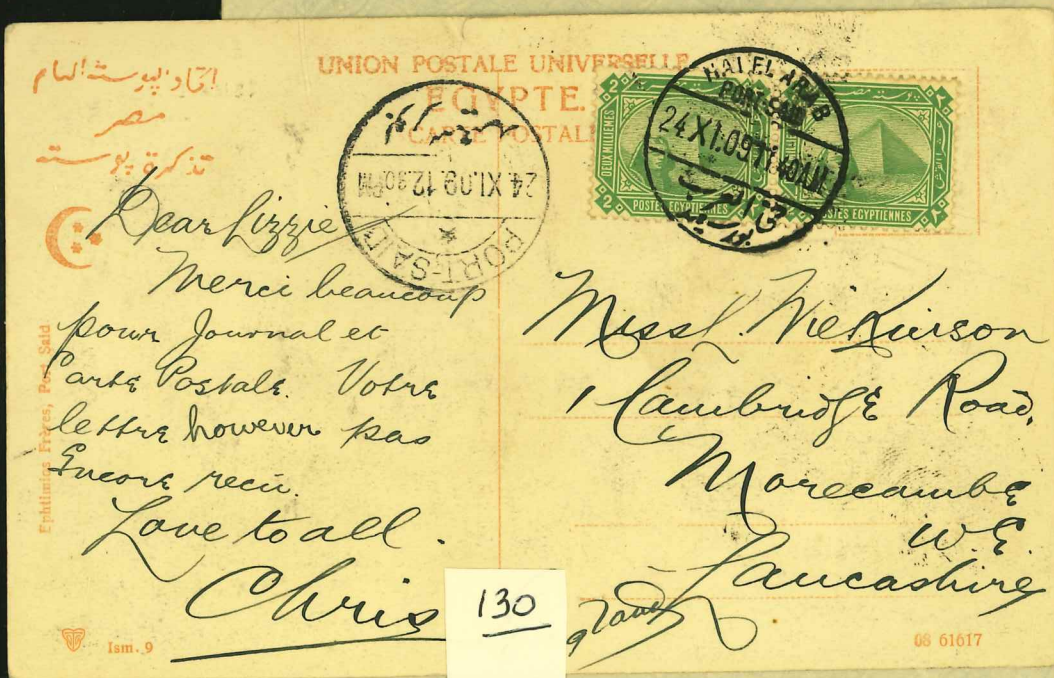 UNION POSTALE UNIVERSELLE
EGYPTE.
CARTE POSTALE
مصر
تذكرة پوسته
PORT-SAID
24.XI.09.12.30PM
HAI EL ARAB
PORT-SAID
24.XI.09
2 DEUX MILLIEMES
POSTES EGYPTIENNES
POSTES EGYPTIENNES
Dear Lizzie
Merci beaucoup
pour Journal et
Carte Postale. Votre
lettre however pas
Encore recu.
Love to all.
Chris
Miss L. Wilkinson
1 Cambridge Road.
Morecambe
W.E.
Lancashire
130
Ephtimios Frères, Port Said
Ism. 9
08 61617